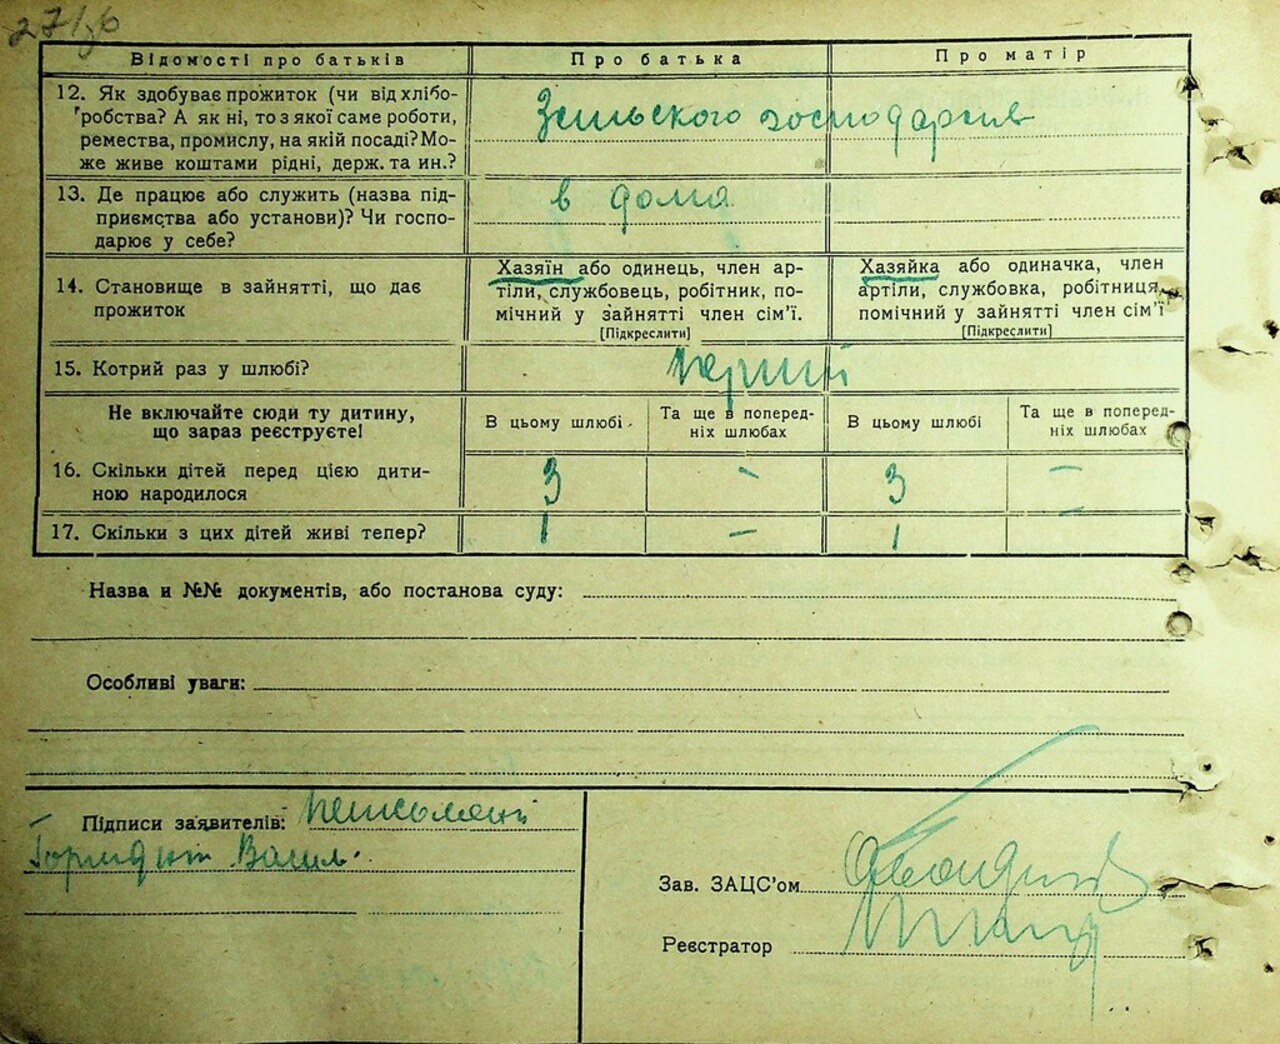 27/зб
Відомості про батьків
Про батька
Про матір
12. Як здобуває прожиток (чи від хлібо-
робства? А як ні, то з якої саме роботи,
ремества, промислу, на якій посаді? Мо-
же живе коштами рідні, держ. та ин.?
Зсильского господарсив
13. Де працює або служить (назва під-
приємства або установи)? Чи госпо-
дарює у себе?
в дома
14. Становище в зайнятті, що дає
прожиток
Хазяїн або одинець, член ар-
тіли, службовець, робітник, по-
мічний у зайнятті член сім'ї.
[Підкреслити]
Хазяйка або одиначка, член
артіли, службовка, робітниця,
помічний у зайнятті член сім'ї
[Підкреслити]
15. Котрий раз у шлюбі?
перший
Не включайте сюди ту дитину,
що зараз реєструєте!
В цьому шлюбі
Та ще в поперед-
ніх шлюбах
В цьому шлюбі
Та ще в поперед-
ніх шлюбах
16. Скільки дітей перед цією дити-
ною народилося
3 - 3 -
17. Скільки з цих дітей живі тепер?
1 - 1 -
Назва и №№ документів, або постанова суду:
Особливі уваги:
Підписи заявителів:
Васил.
Зав. ЗАЦС'ом
Реєстратор